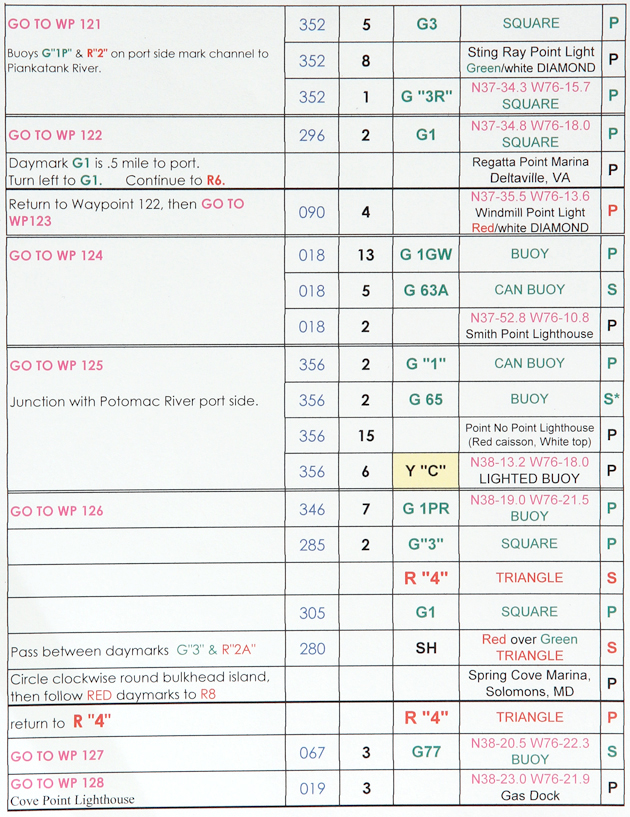 GO TO WP 121 352 5 G3 SQUARE P
Buoys G"1P" & R"2" on port side mark channel to
Piankatank River.
352 8 Sting Ray Point Light P
Green/white DIAMOND
352 1 G "3R" N37-34.3 W76-15.7 P
SQUARE
GO TO WP 122 296 2 G1 N37-34.8 W76-18.0 P
SQUARE
Daymark G1 is .5 mile to port. Regatta Point Marina P
Turn left to G1. Continue to R6. Deltaville, VA
Return to Waypoint 122, then GO TO 090 4 N37-35.5 W76-13.6 P
WP123 Windmill Point Light
Red/white DIAMOND
GO TO WP 124 018 13 G 1GW BUOY P
018 5 G 63A CAN BUOY S
018 2 N37-52.8 W76-10.8 P
Smith Point Lighthouse
GO TO WP 125 356 2 G "1" CAN BUOY P
Junction with Potomac River port side. 356 2 G 65 BUOY S*
356 15 Point No Point Lighthouse P
(Red caisson, White top)
356 6 Y "C" N38-13.2 W76-18.0 P
LIGHTED BUOY
GO TO WP 126 346 7 G 1PR N38-19.0 W76-21.5 P
BUOY
285 2 G"3" SQUARE P
R "4" TRIANGLE S
305 G1 SQUARE P
Pass between daymarks G"3" & R"2A" 280 SH Red over Green S
TRIANGLE
Circle clockwise round bulkhead island, Spring Cove Marina, P
then follow RED daymarks to R8 Solomons, MD
return to R "4" R "4" TRIANGLE P
GO TO WP 127 067 3 G77 N38-20.5 W76-22.3 S
BUOY
GO TO WP 128 019 3 N38-23.0 W76-21.9 P
Cove Point Lighthouse Gas Dock